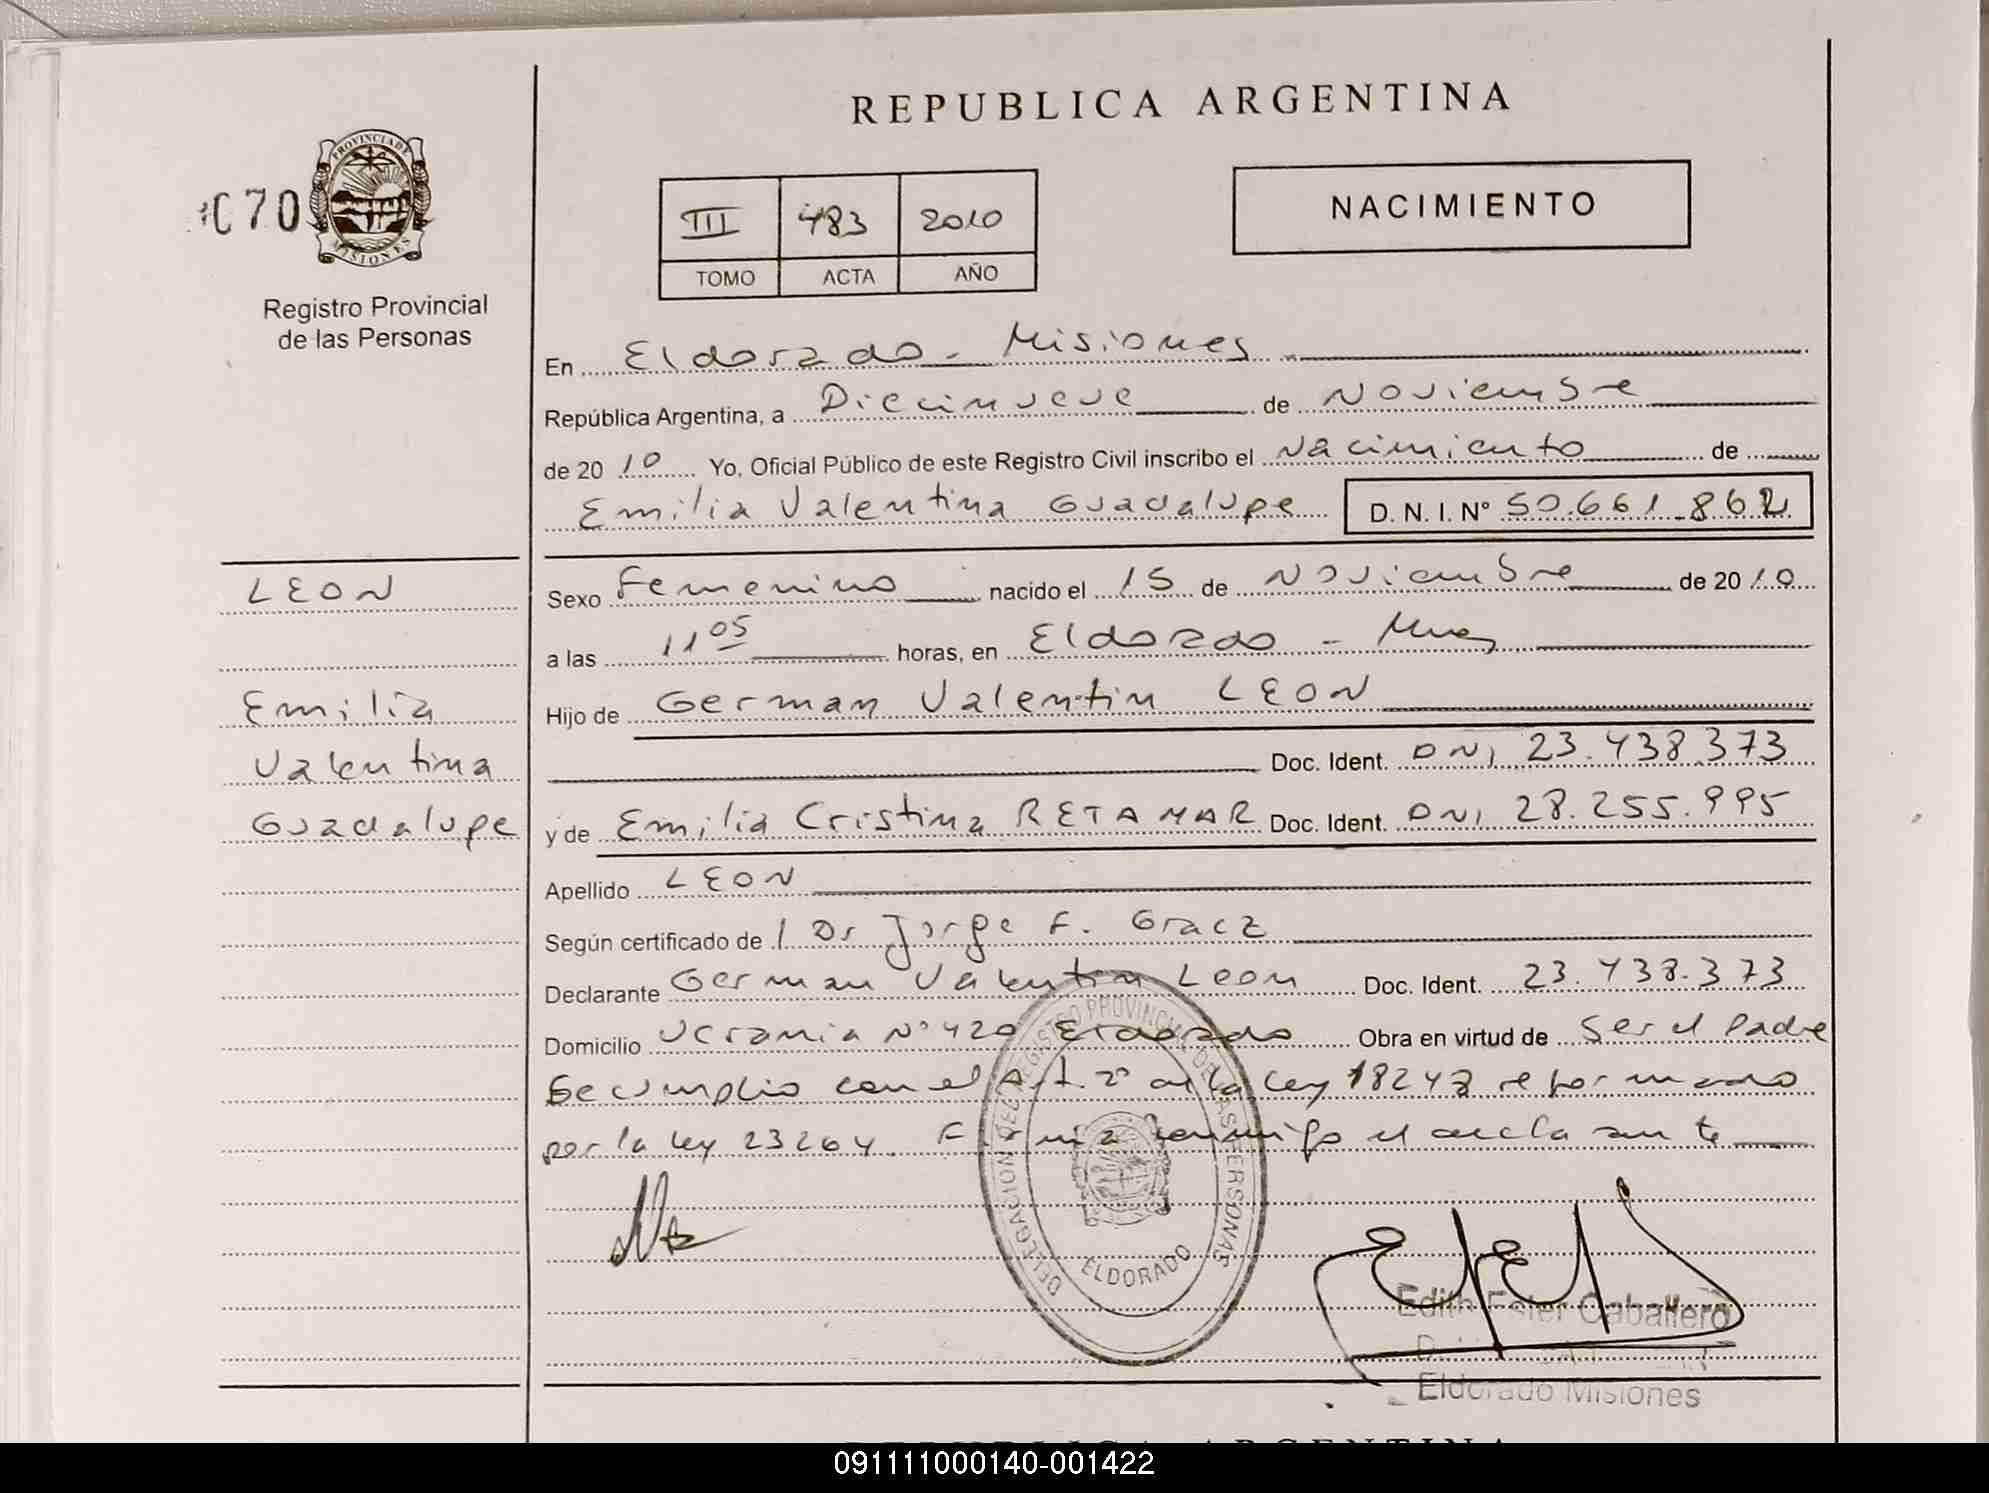 REPUBLICA ARGENTINA
C70
PROVINCIA DE
MISIONES
Registro Provincial
de las Personas
III 483 2010
TOMO ACTA AÑO
NACIMIENTO
En Eldorado - Misiones
República Argentina, a Diecinueve de Noviembre
de 2010 Yo, Oficial Público de este Registro Civil inscribo el Nacimiento de
Emilia Valentina Guadalupe D. N. I. Nº 50.661.862
LEON
Emilia
Valentina
Guadalupe
Sexo Femenino nacido el 15 de Noviembre de 2010
a las 11 05 horas, en Eldorado - Mnes
Hijo de German Valentin LEON
Doc. Ident. DNI 23.438.373
y de Emilia Cristina RETAMAR Doc. Ident. DNI 28.255.995
Apellido LEON
Según certificado de l Dr Jorge F. Gracz
Declarante German Valentin Leon Doc. Ident. 23.438.373
Domicilio Ucrania Nº 420 Eldorado Obra en virtud de Ser el Padre
Se cumplio con el Art. 2º de la Ley 18248 reformado
por la Ley 23264. Firma conmigo el declarante
DELEGACION DEL REGISTRO PROVINCIAL DE LAS PERSONAS
ELDORADO
Edith Ester Caballero
Eldorado Misiones
REPUBLICA ARGENTINA
091111000140-001422